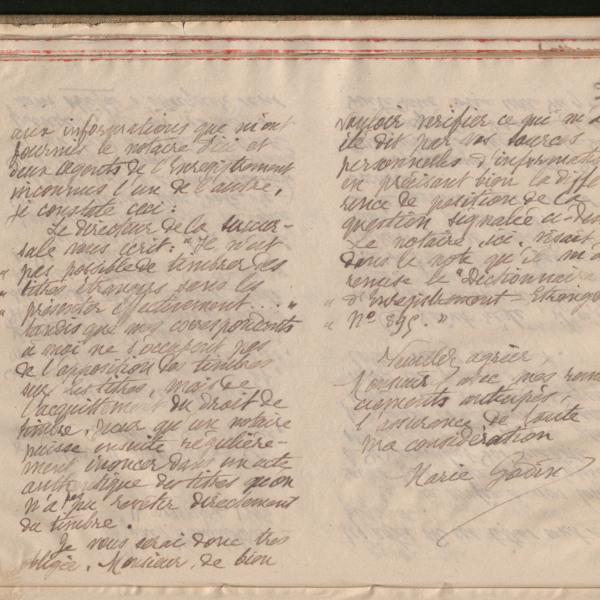 aux informations que m'ont
fournies le notaire d'ici et
deux agents de l'Enregistrement
inconnus l'un de l'autre,
je constate ceci :
Le directeur de la succur-
sale vous écrit : " Je n'est
" pas possible de timbrer des
" titres étrangers sans les
" présenter effectivement . . . "
tandis que mes correspondants
à moi ne s'occupent pas
de l'apposition des timbres
sur les titres, mais de
l'acquittement du droit de
timbre, pour qu'un notaire
puisse ensuite régulière-
ment énoncer dans un acte
authentique des titres qu'on
n'a pu revêtir directement
du timbre.
Je vous serai donc très
obligée, Monsieur, de bien
vouloir vérifier ce qui m'a
été dit par vos sources
personnelles d'informati
en précisant bien la diffé
rence de position de la
question signalée ci-des
Le notaire, ici, visait,
dans la note qu'il m'a
remise le " Dictionnaire
" d'Enregistrement Etrange
" N° 895. "
Veuillez agréer,
Monsieur, avec mes remer
ciements anticipés,
l'assurance de toute
ma considération
Marie